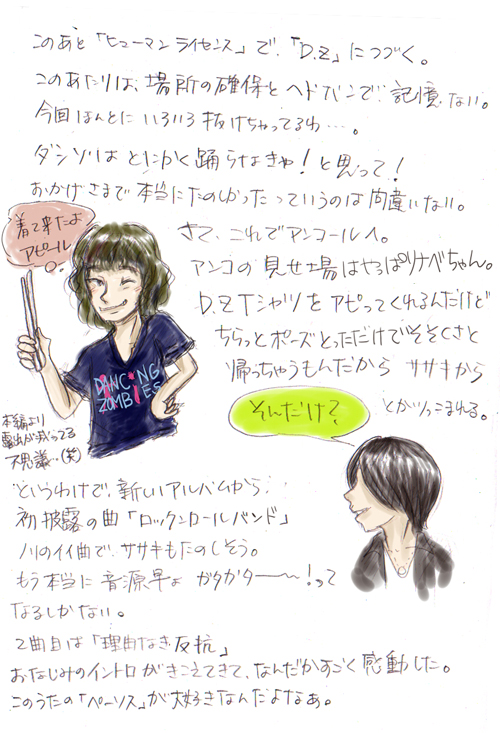 このあと「ヒューマンライセンス」で、「D.Z」につづく。
このあたりは、場所の確保とヘドバンで記憶ない。
今回ほんとにいろいろ抜けちゃってるわ…。
ダンゾンはとにかく踊らなきゃ！と思って！
おかげさまで本当にたのしかったっていうのは間違いない。
さて、これでアンコールへ。
アンコの見せ場はやっぱりナベちゃん。
D.ZTシャツをアピってくれるんだけど
ちらっとポーズとっただけでそそくさと
帰っちゃうもんだから ササキから
とかつっこまれる。
着て来たよ
アピール
DANCING
ZOMBIES
本編より
露出が減ってる
不思議…(笑)
そんだけ？
というわけで、新しいアルバムから
初披露の曲「ロックンロールバンド」
ノリのイイ曲で、ササキもたのしそう。
もう本当に音源早よ ガタガタ――〜！って
なるしかない。
2曲目は「理由なき反抗」
おなじみのイントロがきこえてきて、なんだかすごく感動した。
このうたの「ペーソス」が大好きなんだよなぁ。